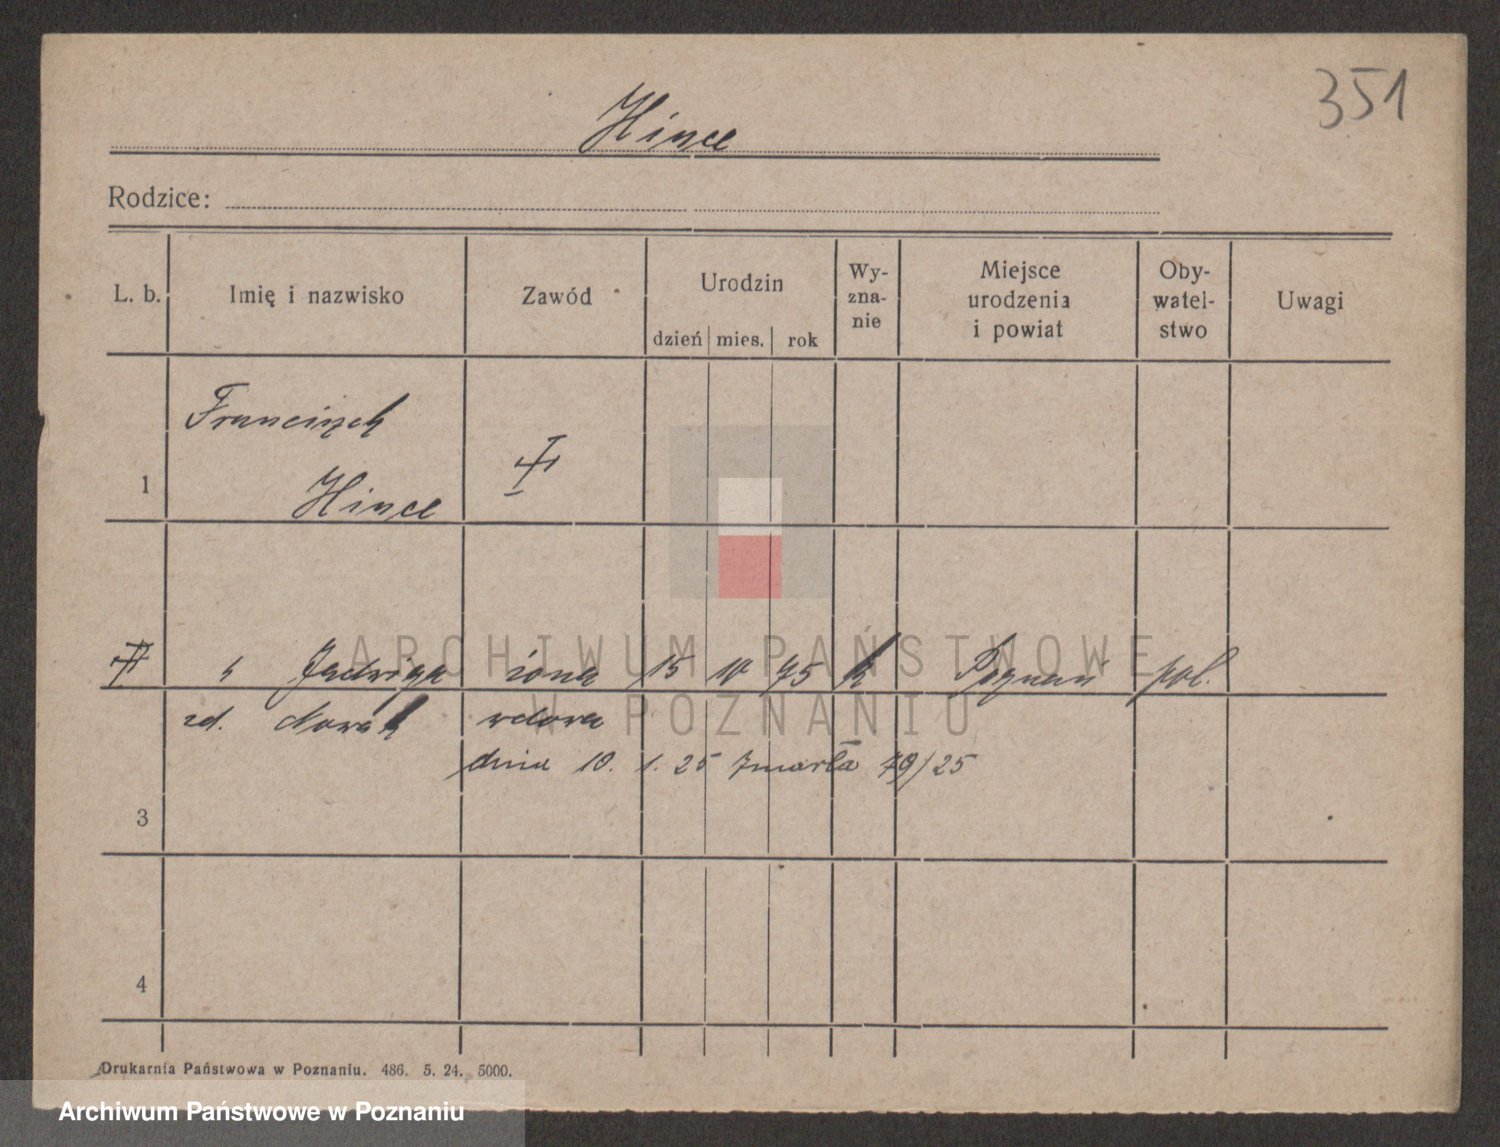 351
Hince
Rodzice:
L. b. Imię i nazwisko Zawód Urodzin dzień mies. rok Wy-zna-nie Miejsce urodzenia i powiat Oby-watel-stwo Uwagi
Franciszek
1 Hince
Jadwiga żona 15 10 75 k Poznań pol.
zd. Nowak wdowa
dnia 10. 1. 25 zmarła 79/25
3
4
Drukarnia Państwowa w Poznaniu. 486. 5. 24. 5000.
ARCHIWUM PAŃSTWOWE
W POZNANIU
Archiwum Państwowe w Poznaniu